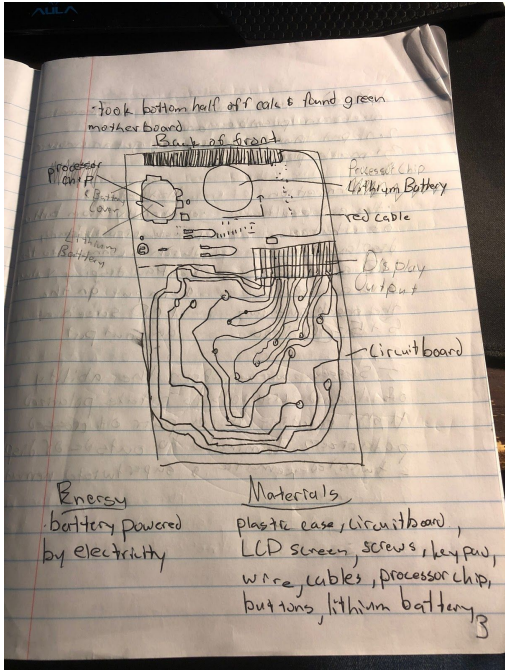 AULA
·took bottom half off calc & found green
motherboard
Back of front
processor
chip
& Battery
Cover
Lithium
Battery
Processor Chip
Lithium Battery
red cable
Display
Output
circuitboard
Energy
·battery powered
by electricity
Materials
plastic case, circuitboard,
LCD screen, screws, keypad,
wire, cables, processor chip,
buttons, lithium battery
3